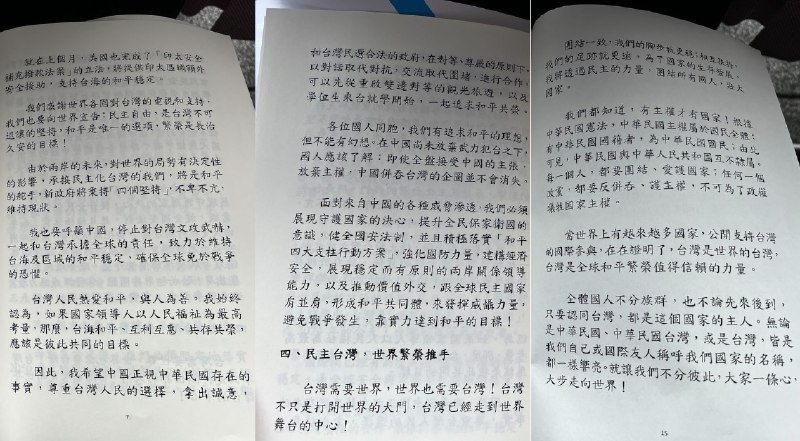 就在上個月，美國也完成了「印太安全
補充撥款法案」的立法，將提供印太區域額外
安全援助，支持台海的和平穩定。
我們感謝世界各國對台灣的重視和支持，
我們也要向世界宣告：民主自由，是台灣不可
退讓的堅持，和平是唯一的選項，繁榮是長治
久安的目標！
由於兩岸的未來，對世界的局勢有決定性
的影響，承接民主化台灣的我們，將是和平
的舵手，新政府將秉持「四個堅持」，不卑不亢，
維持現狀。
我也要呼籲中國，停止對台灣文攻武嚇，
一起和台灣承擔全球的責任，致力於維持
台海及區域的和平穩定，確保全球免於戰爭
的恐懼。
台灣人民熱愛和平，與人為善。我始終
認為，如果國家領導人以人民福祉為最高
考量，那麼，台海和平、互利互惠、共存共榮，
應該是彼此共同的目標。
因此，我希望中國正視中華民國存在的
事實，尊重台灣人民的選擇，拿出誠意，
7
和台灣民選合法的政府，在對等、尊嚴的原則下，
以對話取代對抗，交流取代圍堵，進行合作，
可以先從重啟雙邊對等的觀光旅遊，以及
學位生來台就學開始，一起追求和平共榮。
各位國人同胞，我們有追求和平的理想，
但不能有幻想。在中國尚未放棄武力犯台之下，
國人應該了解：即使全盤接受中國的主張，
放棄主權，中國併吞台灣的企圖並不會消失。
面對來自中國的各種威脅滲透，我們必須
展現守護國家的決心，提升全民保家衛國的
意識，健全國安法制，並且積極落實「和平
四大支柱行動方案」，強化國防力量，建構經濟
安全，展現穩定而有原則的兩岸關係領導
能力，以及推動價值外交，跟全球民主國家
肩並肩，形成和平共同體，來發揮威懾力量，
避免戰爭發生，靠實力達到和平的目標！
四、民主台灣，世界繁榮推手
台灣需要世界，世界也需要台灣！台灣
不只是打開世界的大門，台灣已經走到世界
舞台的中心！
團結一致，我們的腳步就更穩；相互扶持，
我們的足跡就更遠。為了國家的生存發展，
我將透過民主的力量，團結所有國人，壯大
國家。
我們都知道，有主權才有國家！根據
中華民國憲法，中華民國主權屬於國民全體；
有中華民國國籍者，為中華民國國民；由此
可見，中華民國與中華人民共和國互不隸屬。
每一個人，都要團結、愛護國家；任何一個
政黨，都要反併吞、護主權，不可為了政權
犧牲國家主權。
當世界上有越來越多國家，公開支持台灣
的國際參與，在在證明了，台灣是世界的台灣，
台灣是全球和平繁榮值得信賴的力量。
全體國人不分族群，也不論先來後到，
只要認同台灣，都是這個國家的主人。無論
是中華民國、中華民國台灣，或是台灣，皆是
我們自己或國際友人稱呼我們國家的名稱，
都一樣響亮。就讓我們不分彼此，大家一條心，
大步走向世界！
15